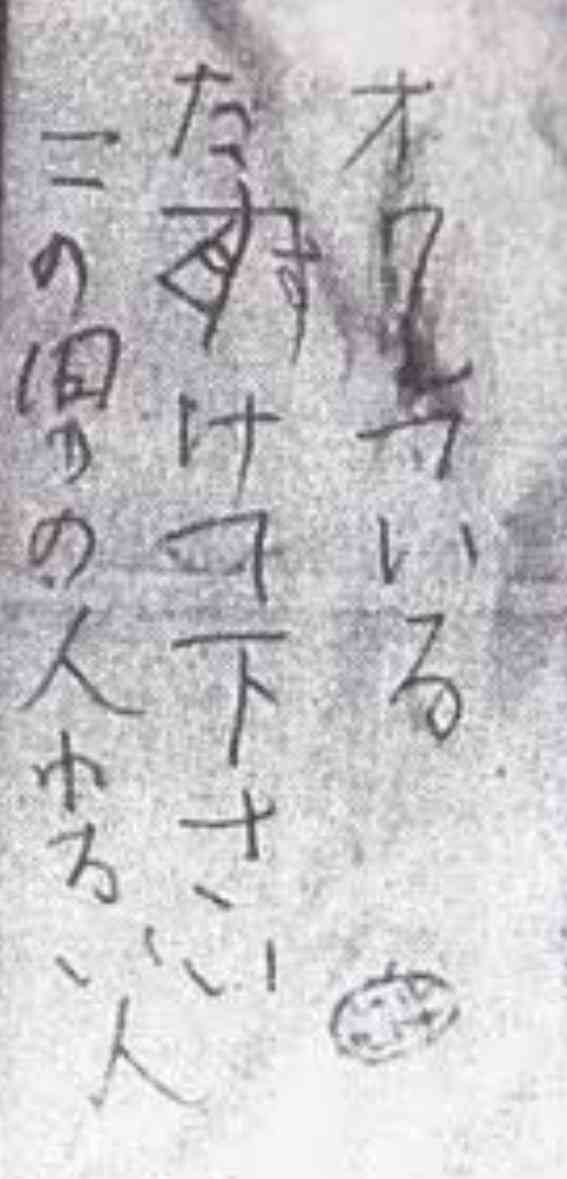 オワレている
たすけて下さい
この男の人わるい人